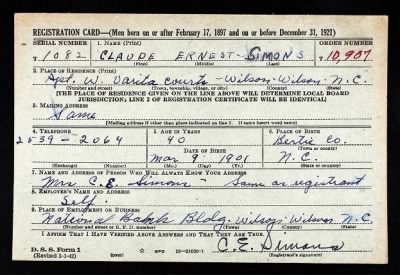 REGISTRATION CARD—(Men born on or after February 17, 1897 and on or before December 31, 1921)
SERIAL NUMBER 1. NAME (Print) ORDER NUMBER
T 1082 CLAUDE ERNEST SIMONS T 10,907
(First) (Middle) (Last)
2. PLACE OF RESIDENCE (Print)
Apt. W. Varita Courts - Wilson - Wilson - N.C.
(Number and street) (Town, township, village, or city) (County) (State)
[THE PLACE OF RESIDENCE GIVEN ON THE LINE ABOVE WILL DETERMINE LOCAL BOARD
JURISDICTION; LINE 2 OF REGISTRATION CERTIFICATE WILL BE IDENTICAL]
3. MAILING ADDRESS
Same
[Mailing address if other than place indicated on line 2. If same insert word same]
4. TELEPHONE 5. AGE IN YEARS 6. PLACE OF BIRTH
2539 - 2064 40 Bertie Co.
DATE OF BIRTH (Town or county)
Mar 9 1901 N.C.
(Exchange) (Number) (Mo.) (Day) (Yr.) (State or country)
7. NAME AND ADDRESS OF PERSON WHO WILL ALWAYS KNOW YOUR ADDRESS
Mrs C. E. Simons - Same as registrant
8. EMPLOYER'S NAME AND ADDRESS
Self.
9. PLACE OF EMPLOYMENT OR BUSINESS
National Bank Bldg. Wilson - Wilson N.C.
(Number and street or R. F. D. number) (Town) (County) (State)
I AFFIRM THAT I HAVE VERIFIED ABOVE ANSWERS AND THAT THEY ARE TRUE.
D. S. S. Form 1
(Revised 1-1-42) (over) 16—21630-1 C. E. Simons
(Registrant's signature)